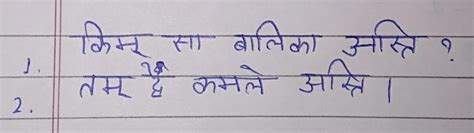 1. किम् सा बालिका अस्ति ?
2. तम् द्वे कमले अस्ति ।